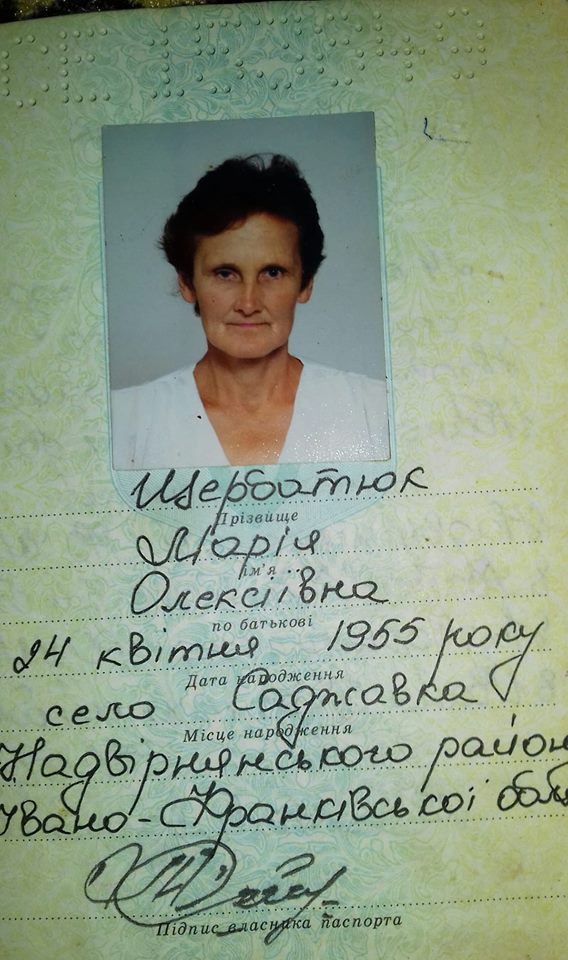 Щербатюк
Прізвище
Марія
ім'я
Олексіївна
по батькові
24 квітня 1955 року
Дата народження
село Саджавка
Місце народження
Надвірнянського район
Івано-Франківської обл
Підпис власника паспорта